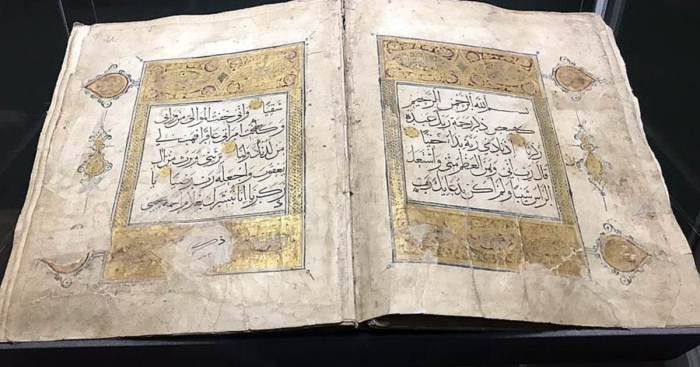 بسم الله الرحمن الرحيم
كهيعص ذكر رحمة ربك عبده
زكريا إذ نادى ربه نداء خفيا
قال رب إني وهن العظم مني واشتعل
الرأس شيبا ولم أكن بدعائك رب
شقيا وإني خفت الموالي من ورائي
وكانت امرأتي عاقرا فهب لي
من لدنك وليا يرثني ويرث من آل
يعقوب واجعله رب رضيا يا
زكريا إنا نبشرك بغلام اسمه يحيى